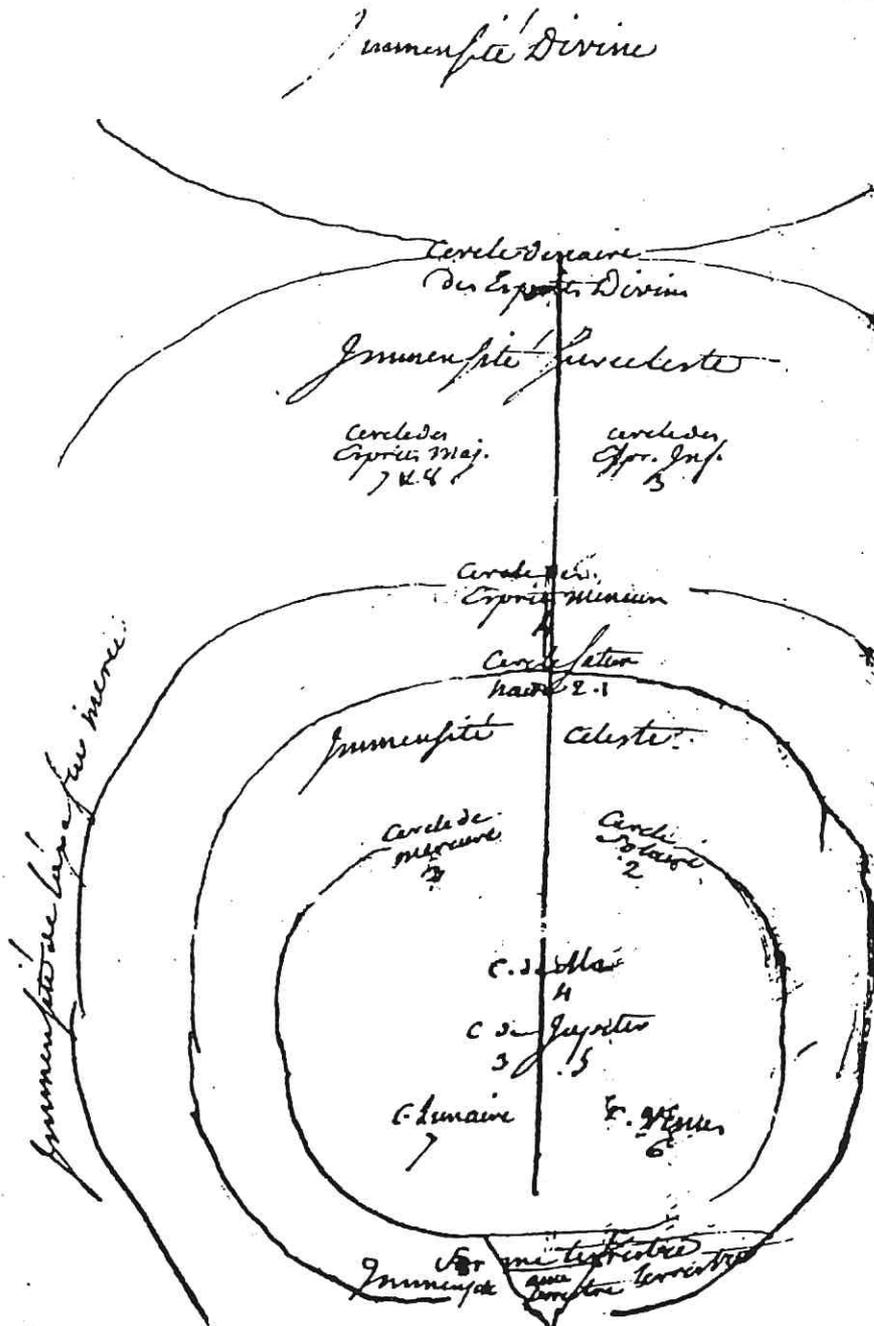 Immensité Divine
Cercle denaire
des Esprits Divins
Immensité Surceleste
Cercle des
Esprits Maj.
7 & 8
Cercle des
Espr. Inf.
3
Cercle des
Esprits Mineurs
4
Cercle Satur
naire 2.1
Immensité Celeste
Cercle de
mercure
3
Cercle
Solaire
2
C. de Mars
4
C de Jupiter
3 5
C. Lunaire
7
C. Vénus
6
Immensité de l'axe feu
terrestre
Immensité terrestre